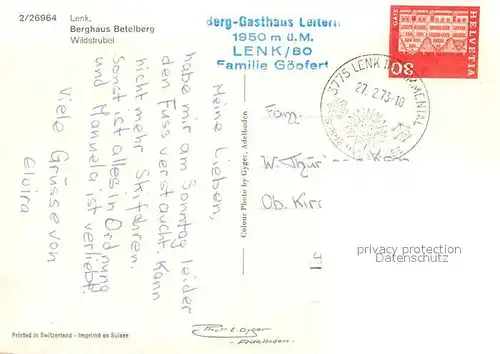 2/26964
Lenk,
Berghaus Betelberg
Wildstrubel
Berg-Gasthaus Leiterli
1950 m ü.M.
LENK/BO
Familie Göpfert
GAIS
HELVETIA
30
3715 LENK IM SIMMENTAL
27.2.73-10
Meine Lieben,
habe mir am Sonntag leider
den Fuss verstaucht. Kann
nicht mehr Skifahren.
Sonst ist alles in Ordnung
und Manuela ist verliebt.
Viele Grüsse von
elvira
Fam.
W.
Ob. Kirc
Colour Photo by Gyger, Adelboden
privacy protection
Printed in Switzerland - Imprimé en Suisse
Adelboden.